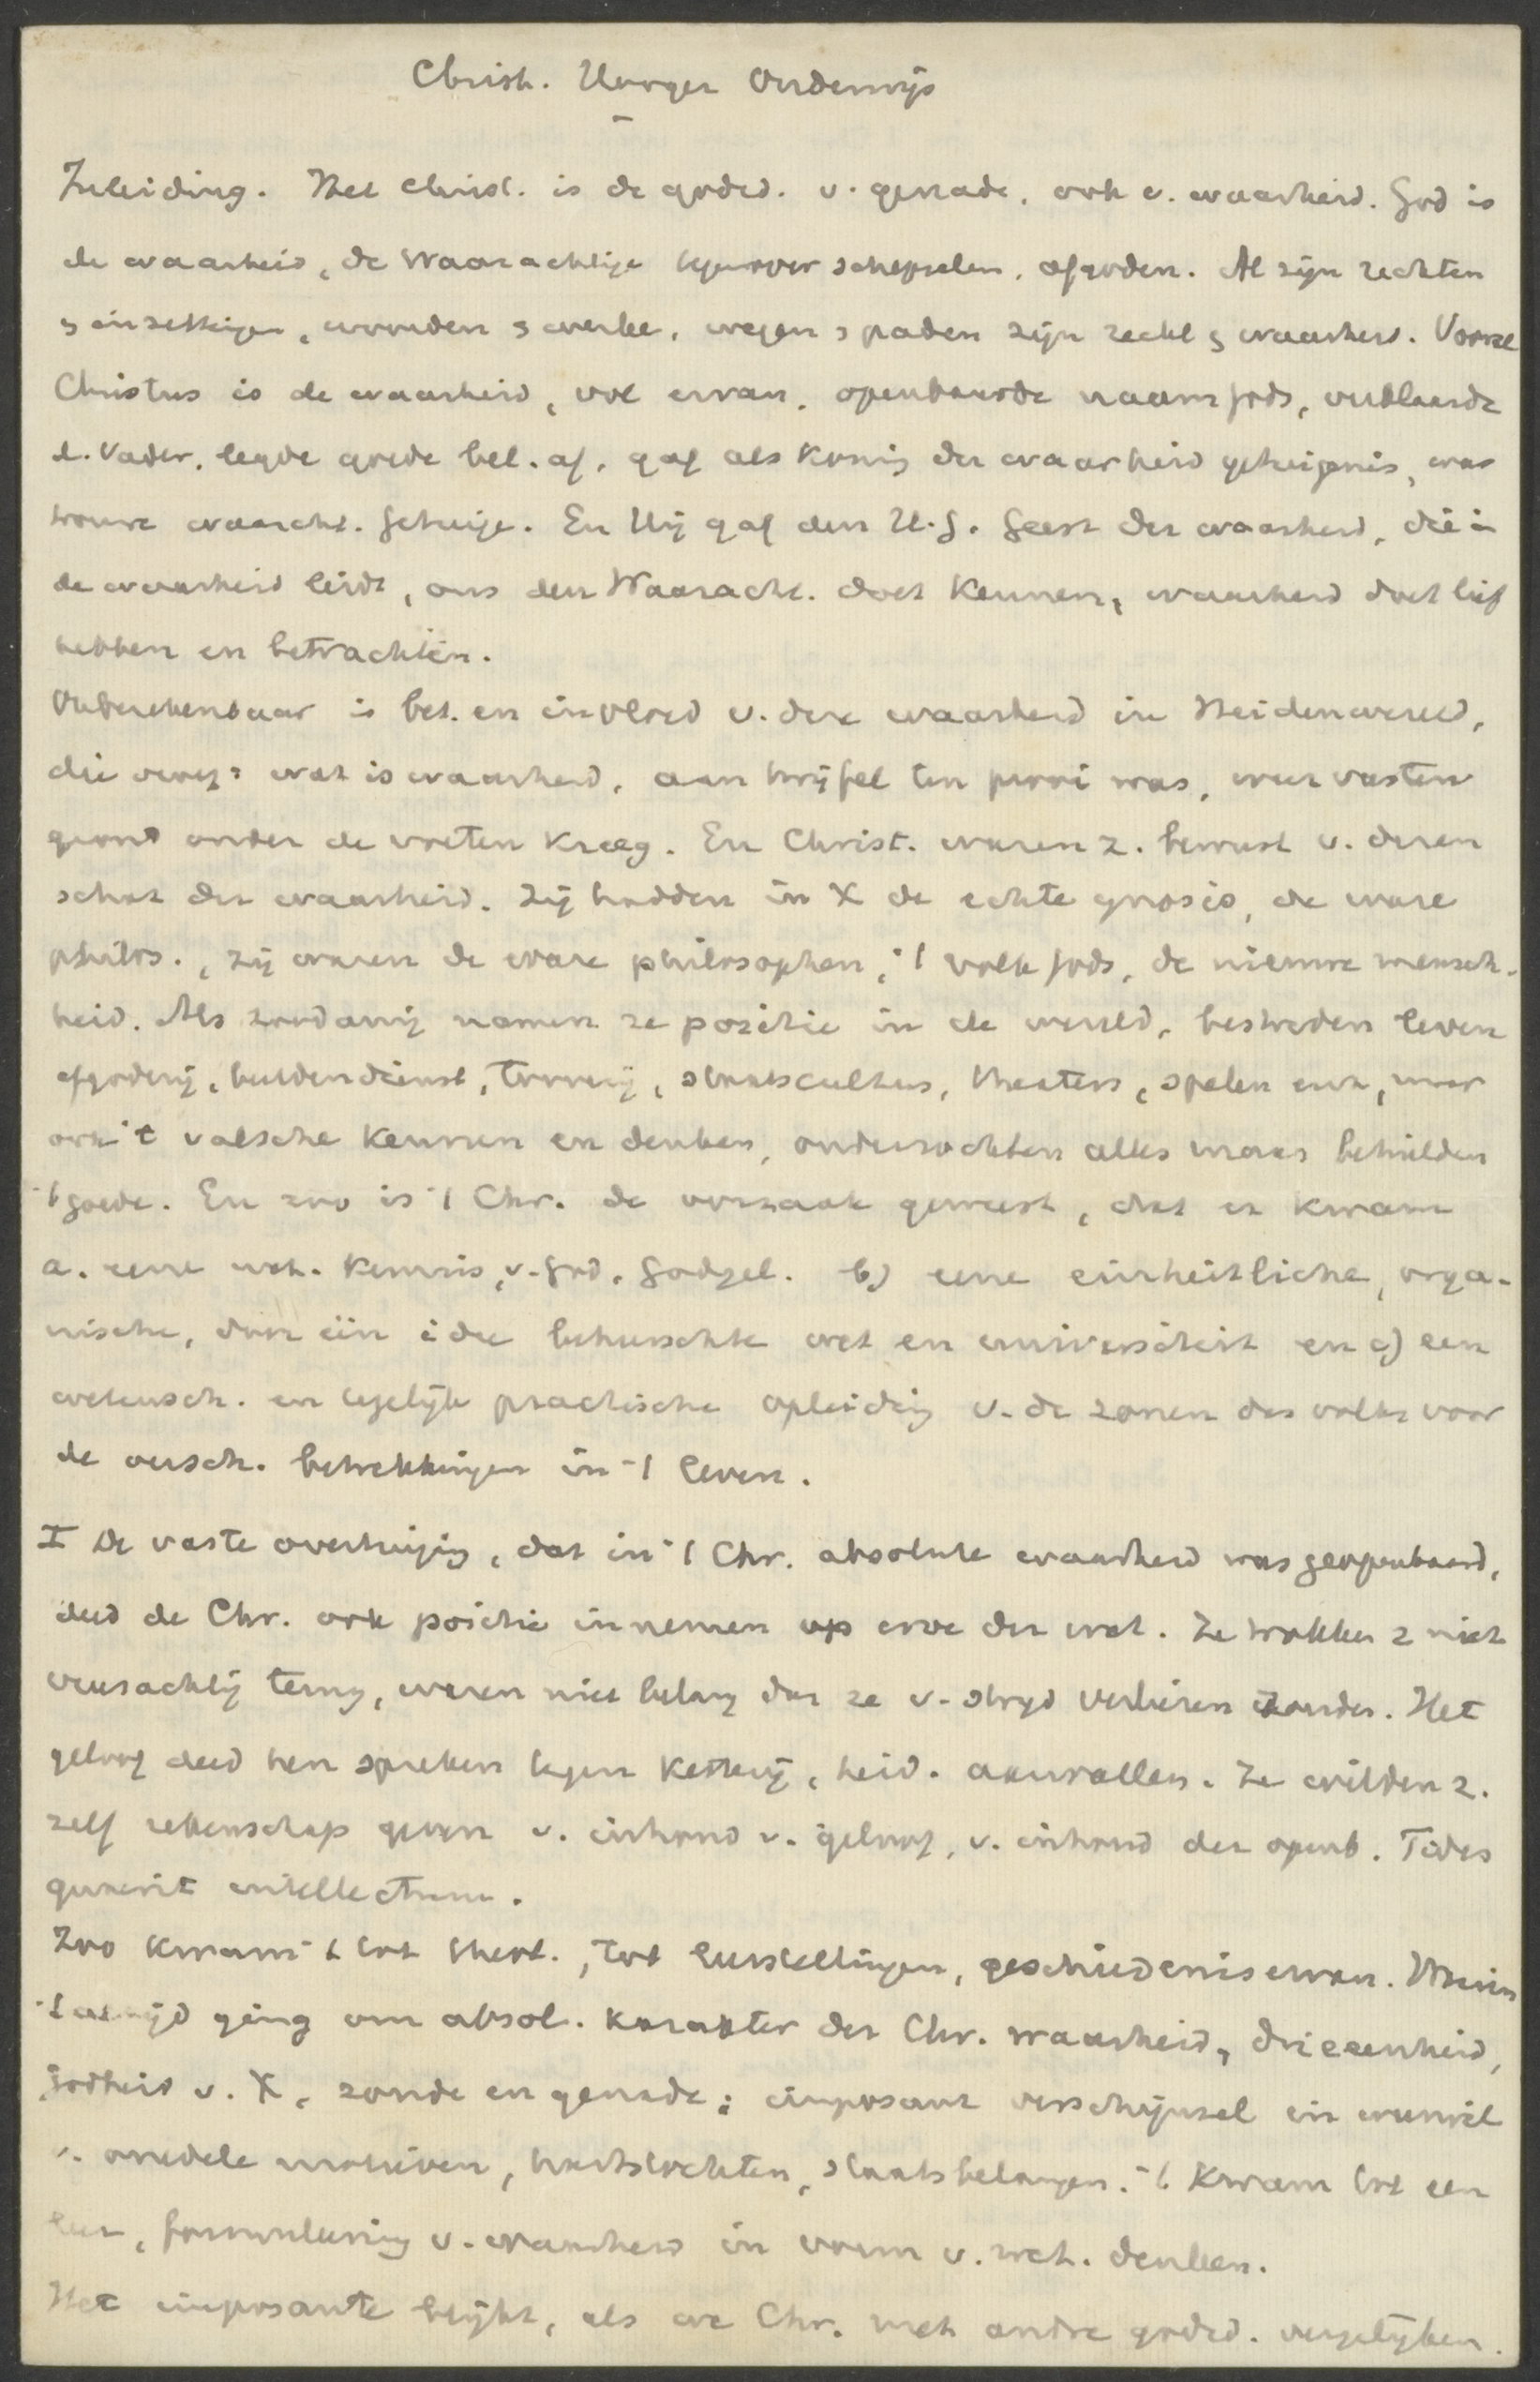 Christ. Hooger Onderwijs
Inleiding. Het Christ. is de godsd. v. genade, ook v. waarheid. God is
de waarheid, de Waarachtige tegenover schepselen, afgoden. Al zijn rechten
en inzettingen, woorden en werken, wegen en paden zijn recht en waarheid. Vooral
Christus is de waarheid, vol ervan, openbaarde naam Gods, verklaarde
d. Vader, legde goede bel. af, gaf als Koning der waarheid getuigenis, was
trouwe waaracht. Getuige. En Hij gaf den H.G. Geest der waarheid, die in
de waarheid leidt, ons den Waaracht. doet kennen, waarheid doet lief
hebben en betrachten.
Onberekenbaar is bet. en invloed v. deze waarheid in Heidenwereld,
die vroeg: wat is waarheid, aan twijfel ten prooi was, weer vasten
grond onder de voeten kreeg. En Christ. waren z. bewust v. dezen
schat der waarheid. Zij hadden in X de echte gnosis, de ware
philos., zij waren de ware philosophen, 't volk Gods, de nieuwe mensch-
heid. Als zoodanig namen ze positie in de wereld, bestreden leven
afgoderij, beeldendienst, tooverij, staatscultus, theaters, spelen enz, maar
ook 't valsche kennen en denken, onderzochten alles maar behielden
't goede. En zoo is 't Chr. de oorzaak geweest, dat er kwam
a. eene wet. kennis v. God, Godgel. b) eene einheitliche, orga-
nische, door één idee beheerschte wet en universiteit en c) een
wetensch. en tegelijk practische opleiding v. de zonen des volks voor
de versch. betrekkingen in 't leven.
I De vaste overtuiging, dat in 't Chr. absolute waarheid was geopenbaard,
deed de Chr. ook positie innemen op erve der wet. Ze trokken z niet
vreesachtig terug, waren niet bang dat ze v. strijd verliezen zouden. Het
geloof deed hen spreken tegen ketterij, heid. aanvallen. Ze wilden z.
zelf rekenschap geven v. inhoud v. geloof, v. inhoud der openb. Fides
quaerit intellectum.
Zoo kwam 't tot theol., tot leerstellingen, geschiedenis ervan. Waarin
't altijd ging om absol. karakter der Chr. waarheid, drieeenheid,
Godheid v. X, zonde en genade; imposant verschijnsel in weerwil
v. onedele motieven, hartstochten, staatsbelangen. 't Kwam tot een
leer, formuleering v. waarheid in vorm v. wet. denken.
Het imposante blijkt, als we Chr. met andre godsd. vergelijken.